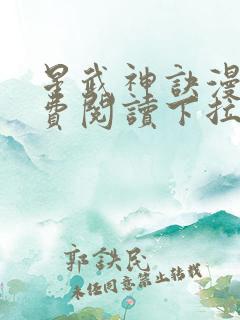 星武神訣漫
費閱讀下拉
郭鉄民
未经同意禁止转载